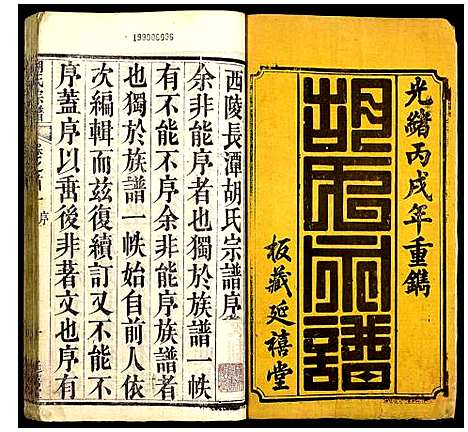 光緒丙戌年重鐫
胡氏宗譜
板藏延禧堂
199000096
西陵長潭胡氏宗譜序
余非能序者也獨於族譜一帙
有不能不序余非能序族譜者
也獨於族譜一帙始自前人依
次編輯而茲復續訂又不能不
序蓋序以垂後非著文也序有
序